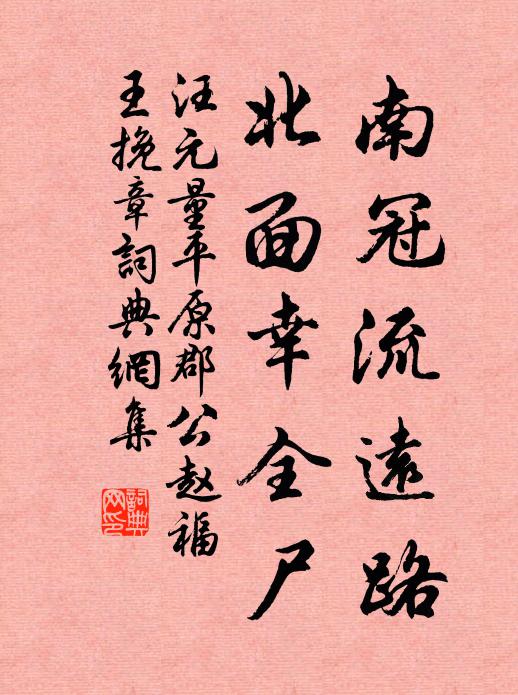 南冠流遠路
北面幸全尸
汪元量平原郡公赵福
王挽章詞典網集
詞典網印